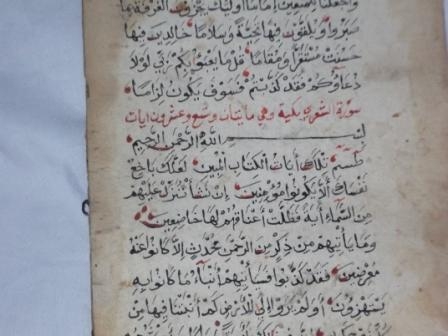 واجعلنا للمتقين إماما أوليك يجزون الغرفة بما
صبروا ويلقون فيها تحية وسلاما خالدين فيها
حسنت مستقرا ومقاما قل ما يعبؤ بكم ربي لولا
دعاؤكم فقد كذبتم فسوف يكون لزاما
سورة الشعرا مكية وهي مايتان وسبع وعشرون ايات
بسم الله الرحمن الرحيم
طسم تلك آيات الكتاب المبين لعلك باخع
نفسك ألا يكونوا مؤمنين إن نشأ ننزل عليهم
من السماء آية فظلت أعناقهم لها خاضعين
وما يأتيهم من ذكر من الرحمن محدث إلا كانوا عنه
معرضين فقد كذبوا فسيأتيهم أنباء ما كانوا به
يستهزؤن أولم يروا إلى الأرض كم أنبتنا فيها من